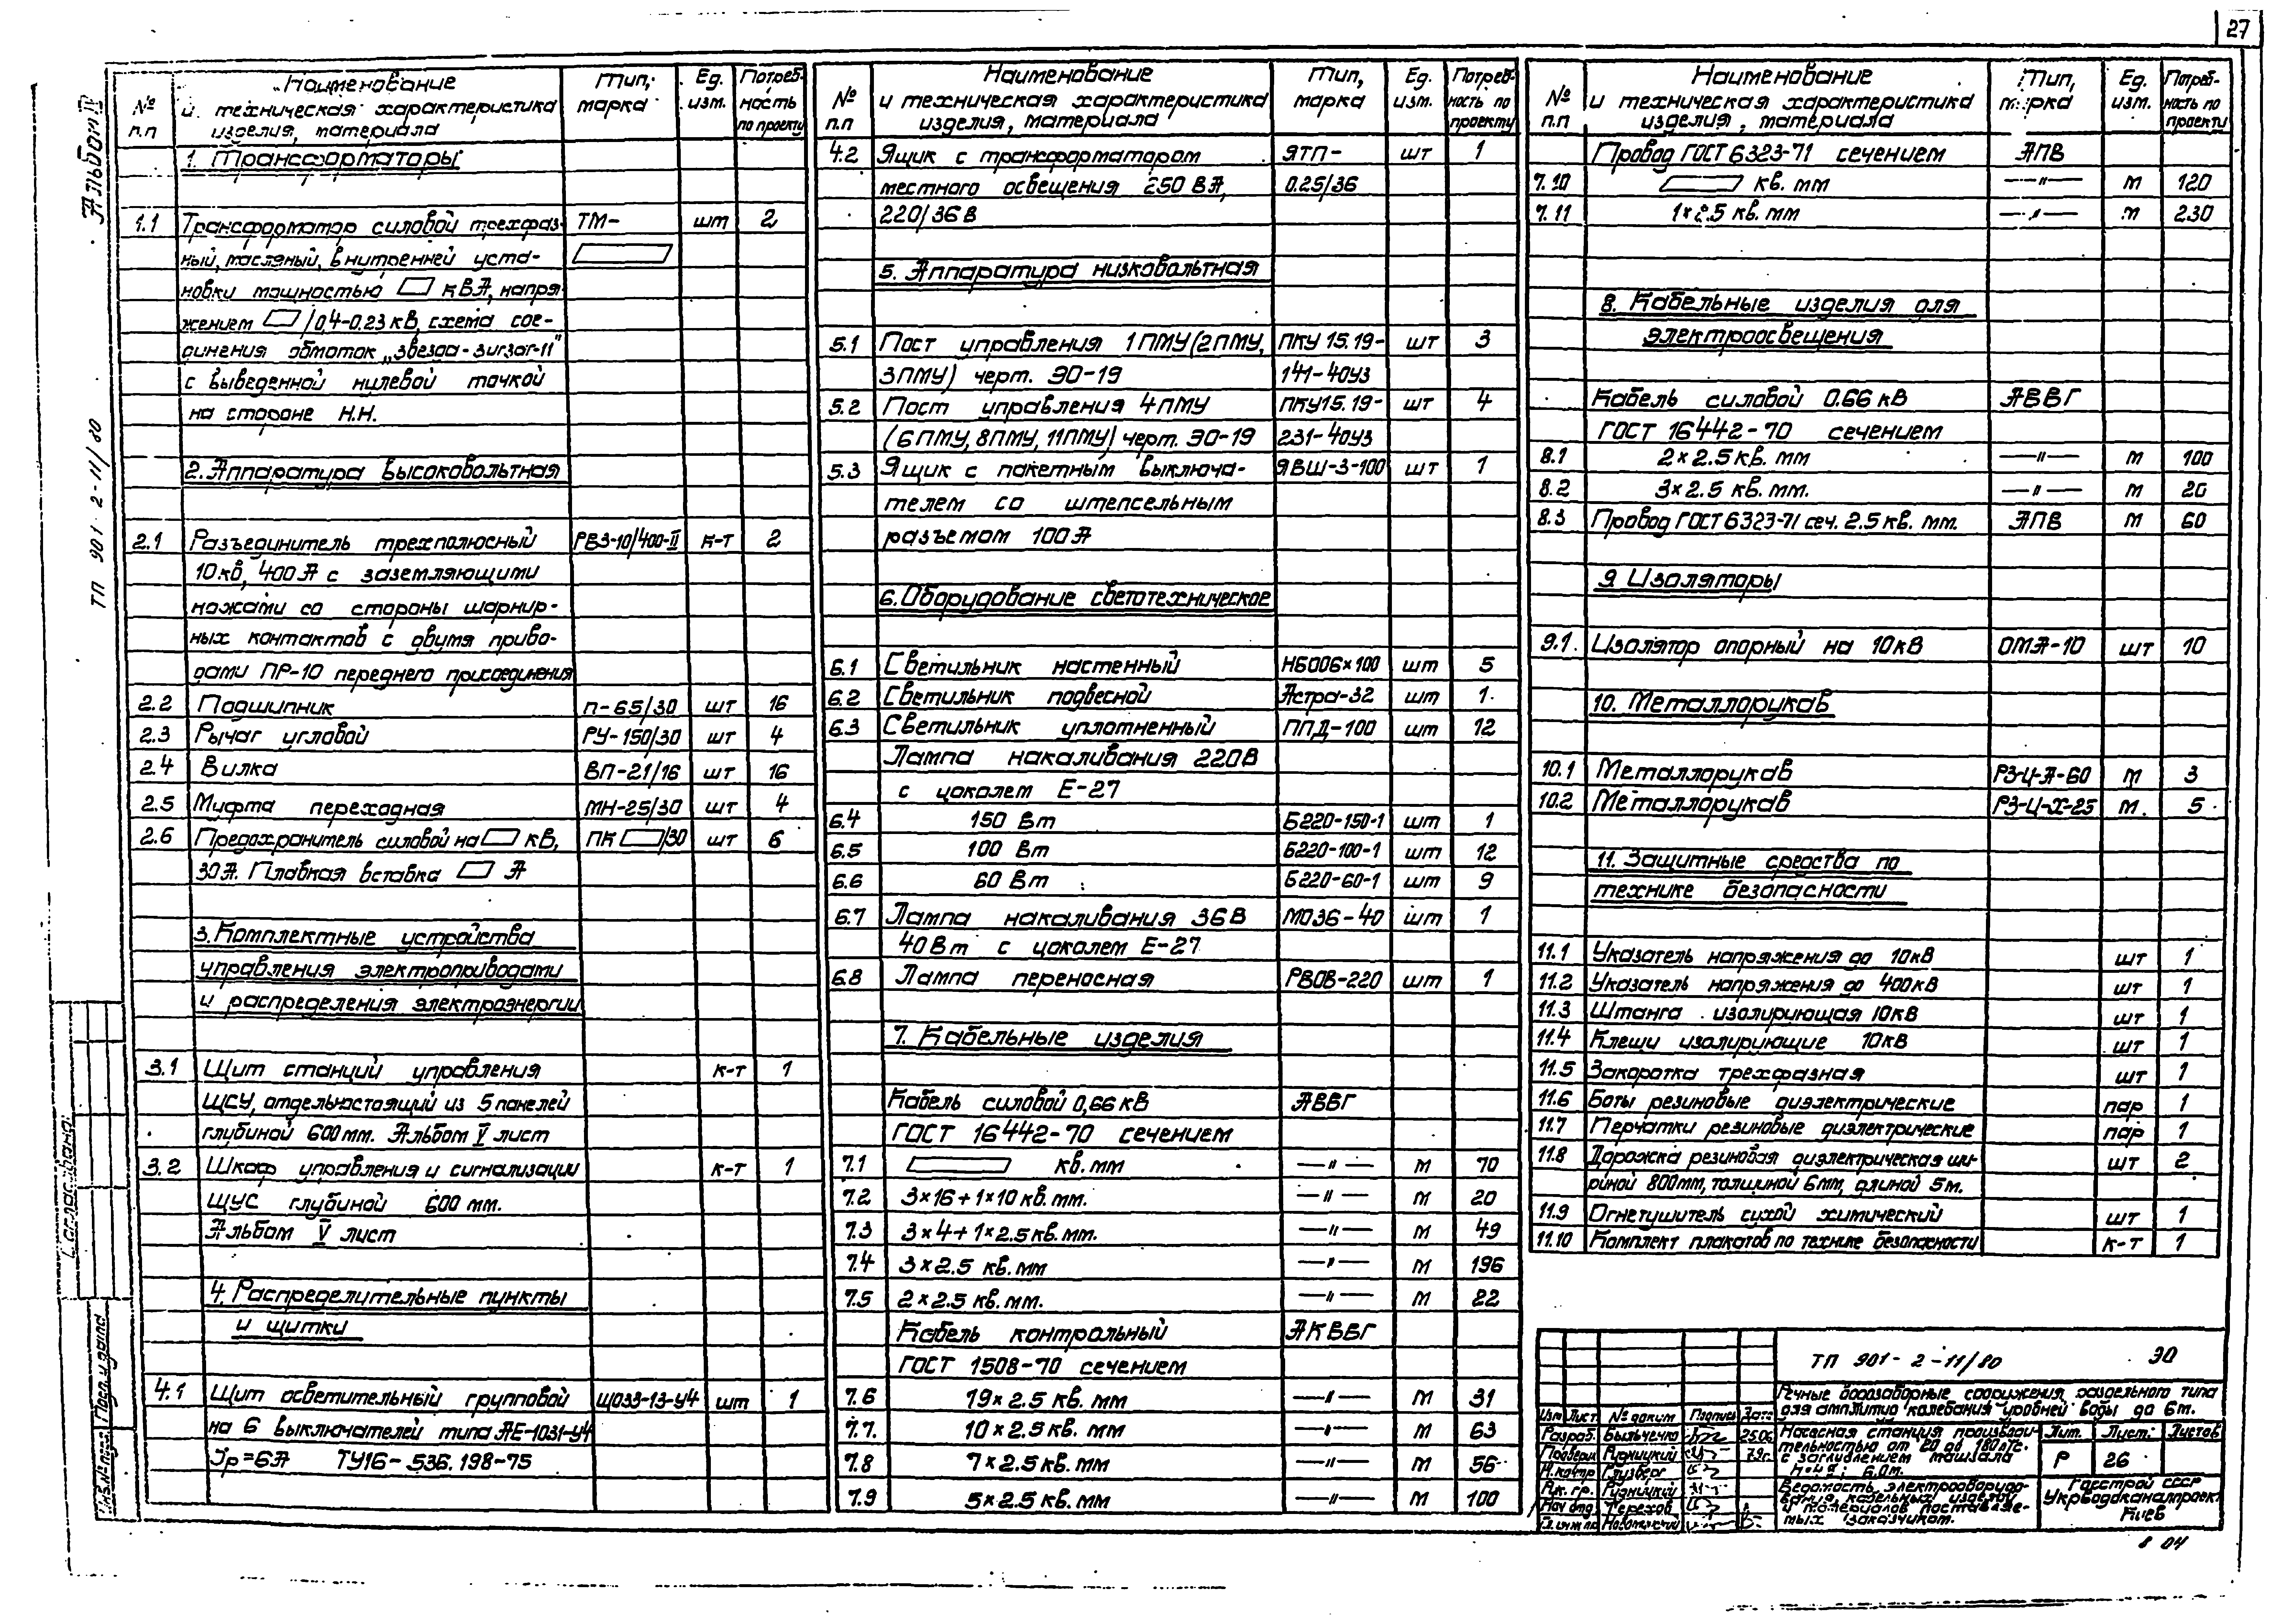 27
Альбом IV
ТП 901-2-11/80
№ п.п | Наименование и техническая характеристика изделия, материала | Тип, марка | Ед. изм. | Потребность по проекту
1. Трансформаторы
1.1 Трансформатор силовой трехфаз- ТМ- шт 2
ный, масляный, внутренней уста-
новки мощностью кВА, напря-
жением /0,4-0.23 кВ, схема сое-
динения обмоток „звезда-зигзаг-11"
с выведенной нулевой точкой
на стороне Н.Н.
2. Аппаратура высоковольтная
2.1 Разъединитель трехполюсный РВЗ-10/400-II к-т 2
10кВ, 400А с заземляющими
ножами со стороны шарнир-
ных контактов с двумя приво-
дами ПР-10 переднего присоединения
2.2 Подшипник П-65/30 шт 16
2.3 Рычаг угловой РУ-150/30 шт 4
2.4 Вилка ВП-21/16 шт 16
2.5 Муфта переходная МН-25/30 шт 4
2.6 Предохранитель силовой на кВ, ПК /30 шт 6
30А. Плавкая вставка А
3. Комплектные устройства
управления электроприводами
и распределения электроэнергии
3.1 Щит станций управления к-т 1
ЩСУ, отдельностоящий из 5 панелей
глубиной 600 мм. Альбом V лист
3.2 Шкаф управления и сигнализации к-т 1
ЩУС глубиной 600 мм.
Альбом V лист
4. Распределительные пункты
и щитки
4.1 Щит осветительный групповой ЩО33-13-У4 шт 1
на 6 выключателей типа АЕ-1031-У4
Jр=6А ТУ16-536.198-75
№ п.п | Наименование и техническая характеристика изделия, материала | Тип, марка | Ед. изм. | Потребность по проекту
4.2 Ящик с трансформатором ЯТП- шт 1
местного освещения 250 ВА, 0.25/36
220/36 В
5. Аппаратура низковольтная
5.1 Пост управления 1ПМУ(2ПМУ, ПКУ 15.19- шт 3
3ПМУ) черт. ЭО-19 141-40У3
5.2 Пост управления 4ПМУ ПКУ15.19- шт 4
(6ПМУ, 8ПМУ, 11ПМУ) черт. ЭО-19 231-40У3
5.3 Ящик с пакетным выключа- ЯВШ-3-100 шт 1
телем со штепсельным
разъемом 100А
6. Оборудование светотехническое
6.1 Светильник настенный НБ006×100 шт 5
6.2 Светильник подвесной Астра-32 шт 1
6.3 Светильник уплотненный ППД-100 шт 12
Лампа накаливания 220В
с цоколем Е-27
6.4 150 Вт Б220-150-1 шт 1
6.5 100 Вт Б220-100-1 шт 12
6.6 60 Вт Б220-60-1 шт 9
6.7 Лампа накаливания 36В МО36-40 шт 1
40Вт с цоколем Е-27
6.8 Лампа переносная РВОВ-220 шт 1
7. Кабельные изделия
Кабель силовой 0,66 кВ АВВГ
ГОСТ 16442-70 сечением
7.1 кв. мм —"— м 70
7.2 3×16+1×10 кв. мм. —"— м 20
7.3 3×4+1×2.5 кв. мм. —"— м 49
7.4 3×2.5 кв. мм —"— м 196
7.5 2×2.5 кв. мм. —"— м 22
Кабель контрольный АКВВГ
ГОСТ 1508-70 сечением
7.6 19×2.5 кв. мм —"— м 31
7.7. 10×2.5 кв. мм —"— м 63
7.8 7×2.5 кв. мм —"— м 56
7.9 5×2.5 кв. мм —"— м 100
№ п.п | Наименование и техническая характеристика изделия, материала | Тип, марка | Ед. изм. | Потребность по проекту
Провод ГОСТ 6323-71 сечением АПВ
7.10 кв. мм —"— м 120
7.11 1×2.5 кв. мм —"— м 230
8. Кабельные изделия для
электроосвещения
Кабель силовой 0.66 кВ АВВГ
ГОСТ 16442-70 сечением
8.1 2×2.5 кв. мм —"— м 100
8.2 3×2.5 кв. мм. —"— м 20
8.3 Провод ГОСТ 6323-71 сеч. 2.5 кв. мм. АПВ м 60
9. Изоляторы
9.1. Изолятор опорный на 10кВ ОМА-10 шт 10
10. Металлорукав
10.1 Металлорукав РЗ-Ц-А-60 м 3
10.2 Металлорукав РЗ-Ц-Х-25 м. 5
11. Защитные средства по
технике безопасности
11.1 Указатель напряжения до 10кВ шт 1
11.2 Указатель напряжения до 400кВ шт 1
11.3 Штанга изолирующая 10кВ шт 1
11.4 Клещи изолирующие 10кВ шт 1
11.5 Закоротка трехфазная шт 1
11.6 Боты резиновые диэлектрические пар 1
11.7 Перчатки резиновые диэлектрические пар 1
11.8 Дорожка резиновая диэлектрическая ши- шт 2
риной 800мм, толщиной 6мм, длиной 5м.
11.9 Огнетушитель сухой химический шт 1
11.10 Комплект плакатов по технике безопасности к-т 1
ТП 901-2-11/80 ЭО
Речные водозаборные сооружения раздельного типа
для амплитуд колебания уровней воды до 6м.
Изм Лист № докум Подпись Дата
Разраб. Бышченко 25.06
Провери Рудницкий 79г.
Н.контр Глузберг
Рук. гр. Рудницкий
Нач отд Терехов
Насосная станция производи-
тельностью от 20 до 180 л/с.
с заглублением машзала
6.0м.
Лит. Лист. Листов
Р 26
Ведомость электрооборудо-
вания, кабельных изделий
и материалов поставляе-
мых заказчиком.
Госстрой СССР
Укрводоканалпроект
Киев
Согласовано:
Подп. и дата
Инв.№ подл.